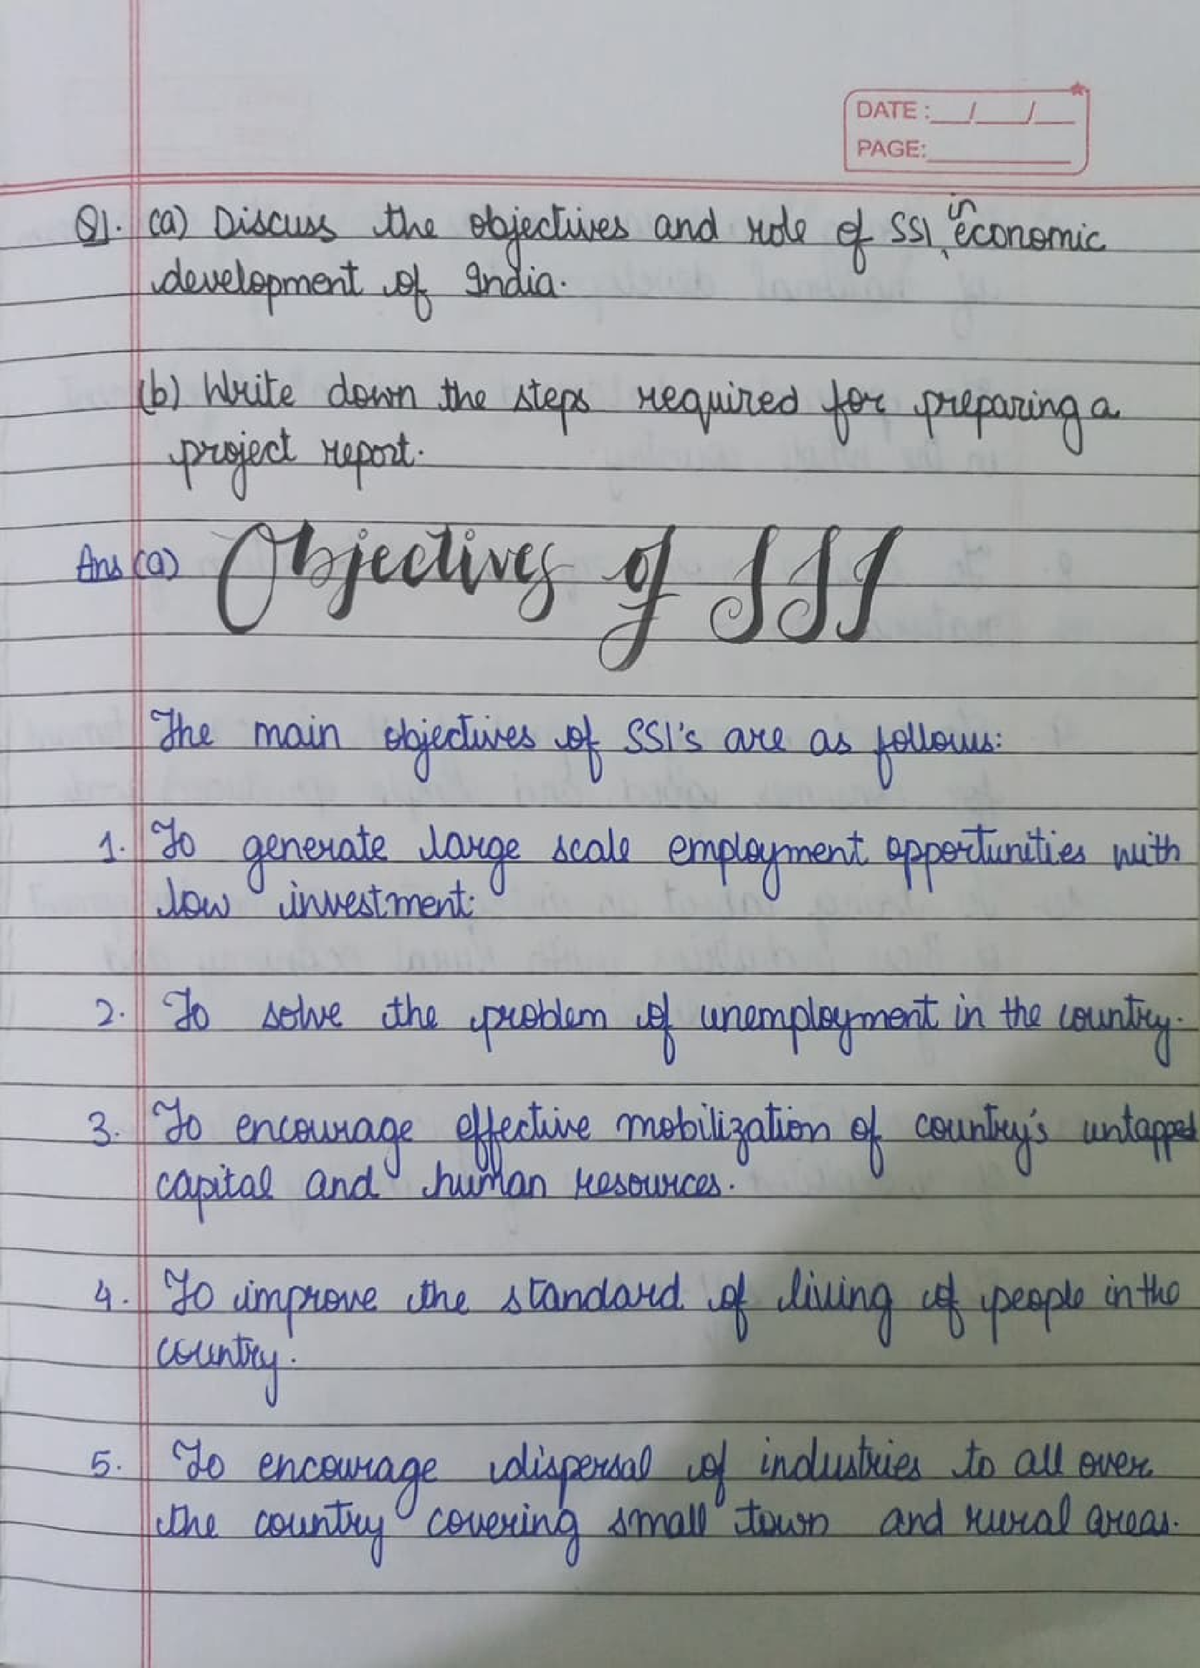 DATE: __/__/__
PAGE: ________
Q1. (a) Discuss the objectives and role of SSI in economic
development of India.
(b) Write down the steps required for preparing a
project report.
Ans (a) Objectives of SSI
The main objectives of SSI's are as follows:
1. To generate large scale employment opportunities with
low investment.
2. To solve the problem of unemployment in the country.
3. To encourage effective mobilization of country's untapped
capital and human resources.
4. To improve the standard of living of people in the
country.
5. To encourage dispersal of industries to all over
the country covering small town and rural areas.